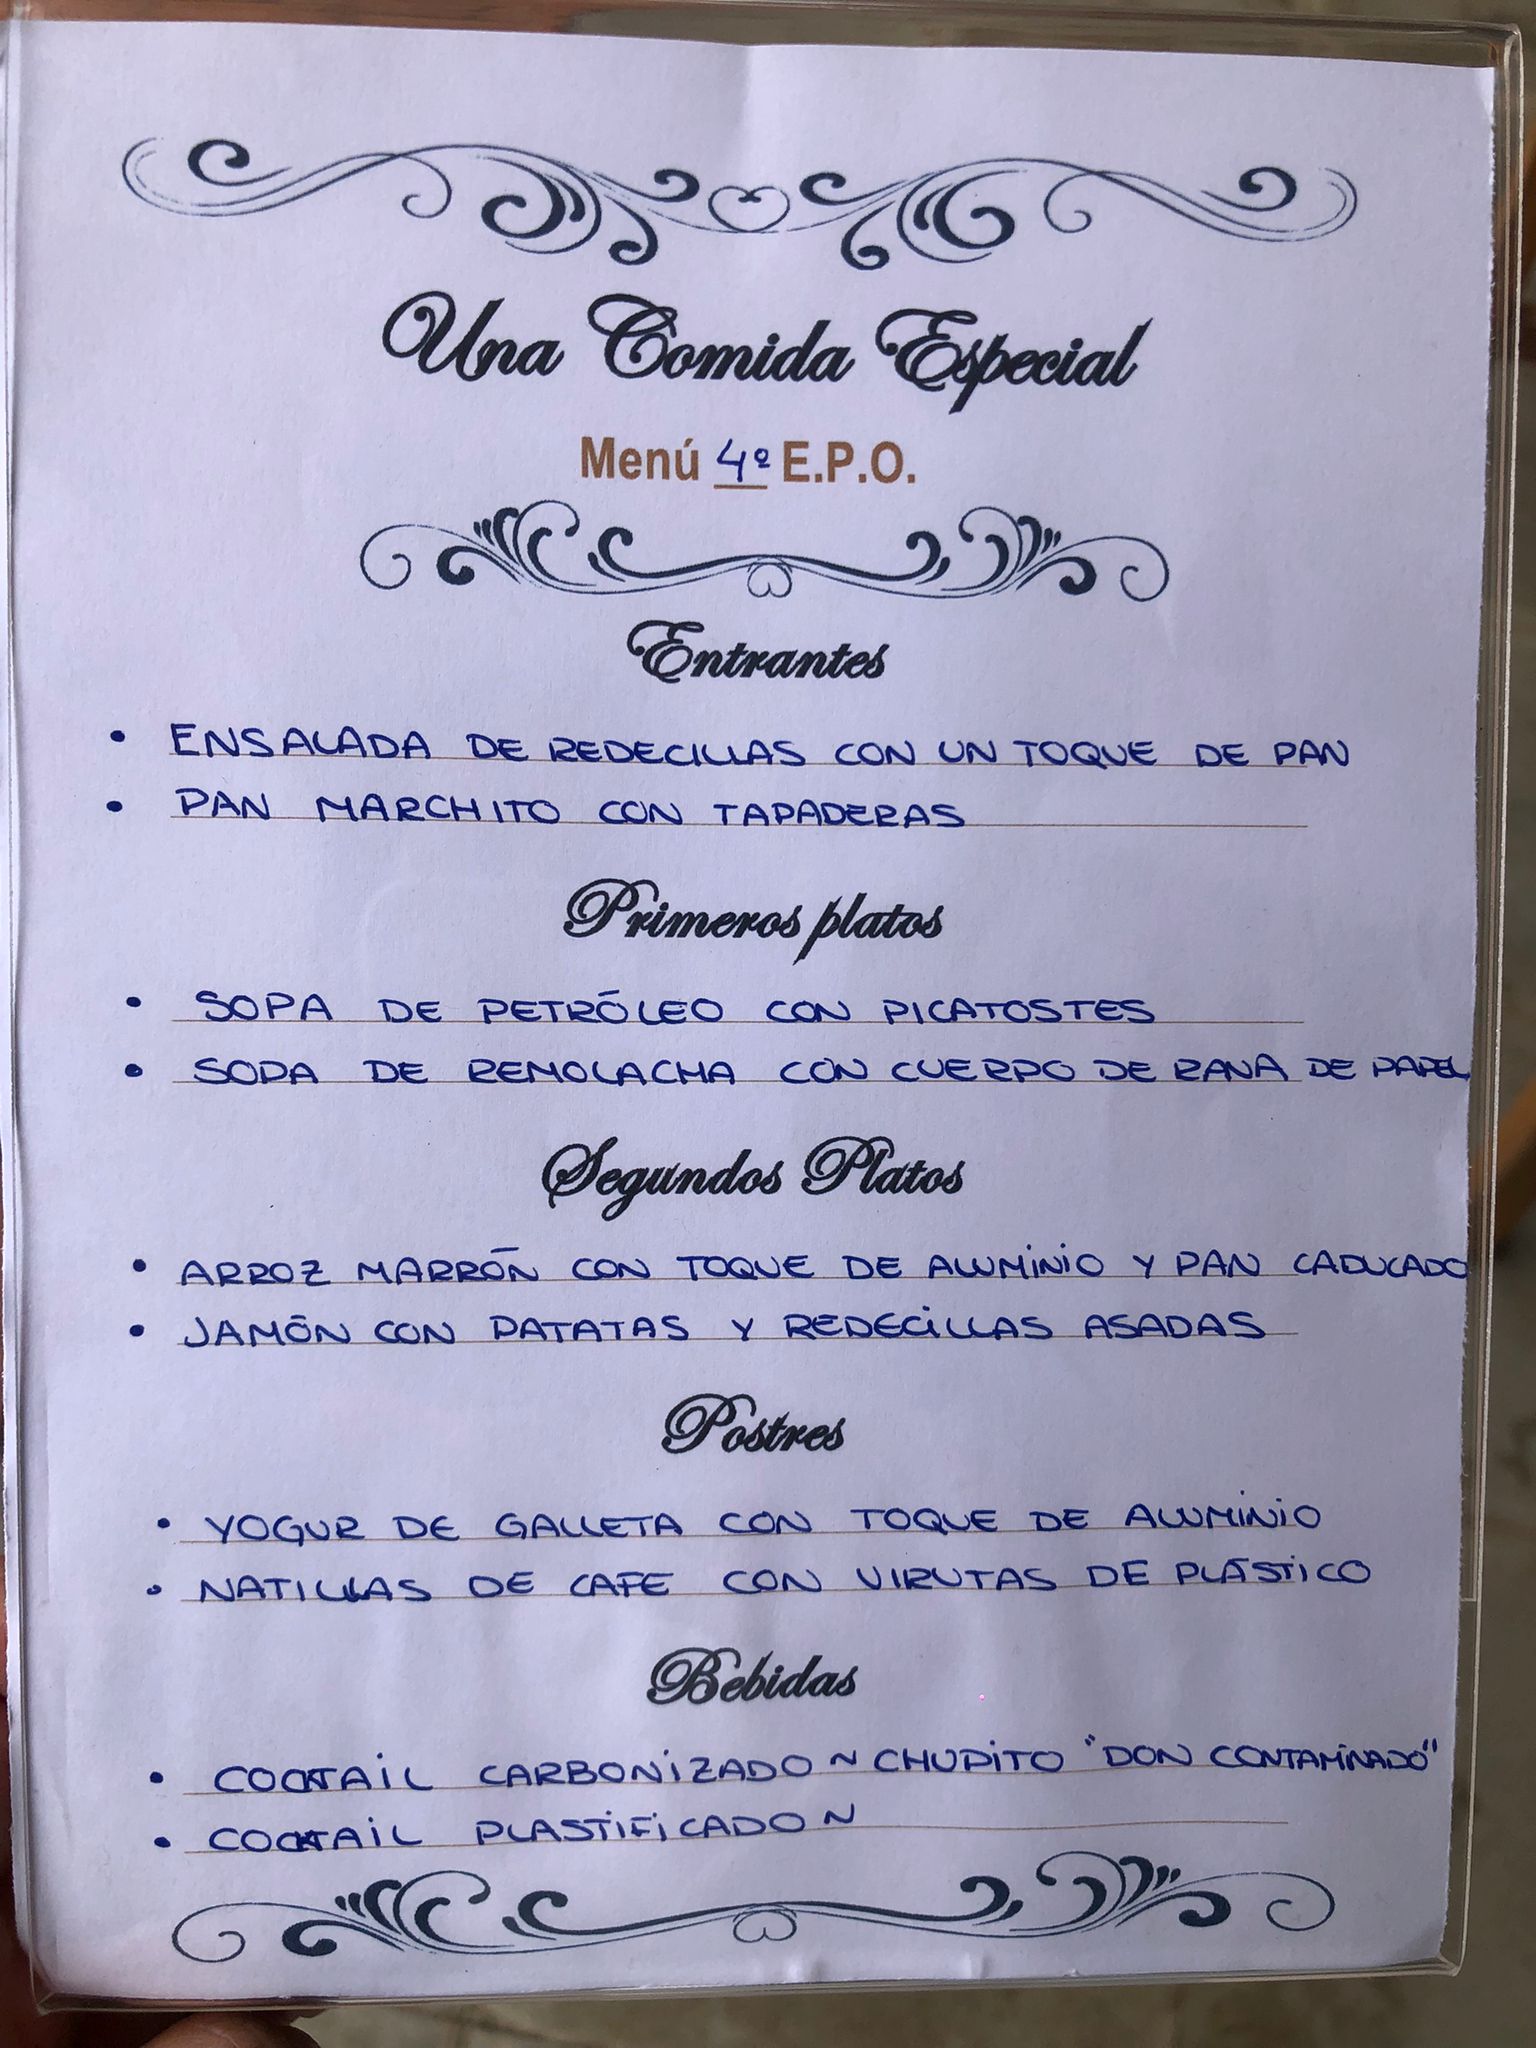 Una Comida Especial
Menú 4º E.P.O.
Entrantes
• ENSALADA DE REDECILLAS CON UN TOQUE DE PAN
• PAN MARCHITO CON TAPADERAS
Primeros platos
• SOPA DE PETRÓLEO CON PICATOSTES
• SOPA DE REMOLACHA CON CUERPO DE RANA DE PAPEL
Segundos Platos
• ARROZ MARRÓN CON TOQUE DE ALUMINIO Y PAN CADUCADO
• JAMÓN CON PATATAS Y REDECILLAS ASADAS
Postres
• YOGUR DE GALLETA CON TOQUE DE ALUMINIO
• NATILLAS DE CAFE CON VIRUTAS DE PLÁSTICO
Bebidas
• COCKTAIL CARBONIZADO ~ CHUPITO "DON CONTAMINADO"
• COCKTAIL PLASTIFICADO ~